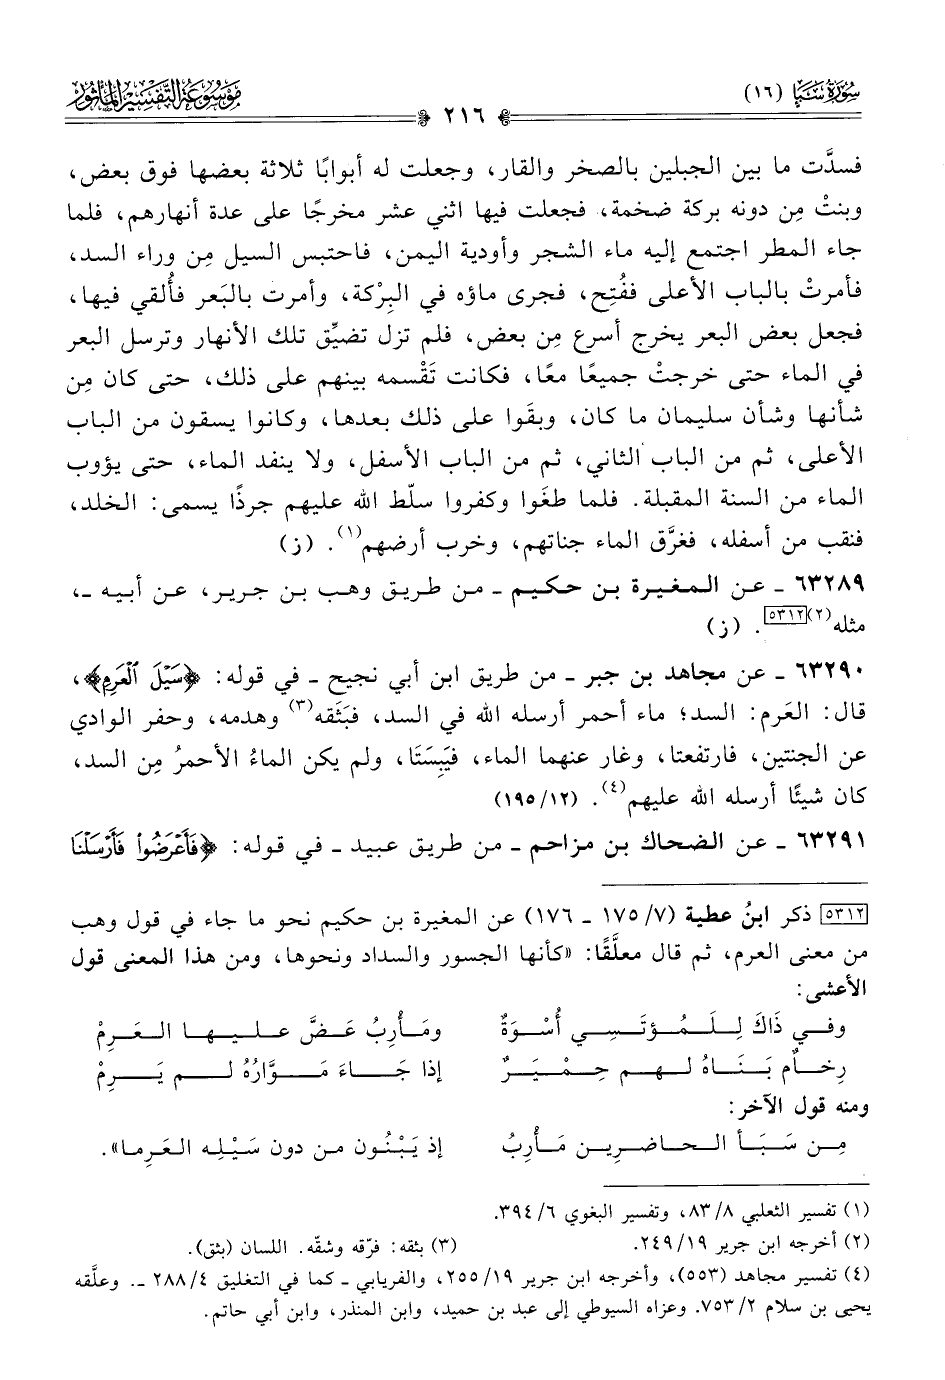 سُورَةُ سَبَإٍ (١٦)
٢١٦
مَوْسُوعَةُ التَّفْسِيرِ المَأْثُور
فسدَّت ما بين الجبلين بالصخر والقار، وجعلت له أبوابًا ثلاثة بعضها فوق بعض،
وبنتْ مِن دونه بركة ضخمة، فجعلت فيها اثني عشر مخرجًا على عدة أنهارهم، فلما
جاء المطر اجتمع إليه ماء الشجر وأودية اليمن، فاحتبس السيل مِن وراء السد،
فأمرتْ بالباب الأعلى ففُتِح، فجرى ماؤه في البِرْكة، وأمرت بالبَعر فأُلقي فيها،
فجعل بعض البعر يخرج أسرع مِن بعض، فلم تزل تضيِّق تلك الأنهار وترسل البعر
في الماء حتى خرجتْ جميعًا معًا، فكانت تَقْسمه بينهم على ذلك، حتى كان مِن
شأنها وشأن سليمان ما كان، وبقَوا على ذلك بعدها، وكانوا يسقون من الباب
الأعلى، ثم من الباب الثاني، ثم من الباب الأسفل، ولا ينفد الماء، حتى يؤوب
الماء من السنة المقبلة. فلما طغَوا وكفروا سلّط الله عليهم جرذًا يسمى: الخلد،
فنقب من أسفله، فغرَّق الماء جناتهم، وخرب أرضهم(١). (ز)
٦٣٢٨٩ ـ عن المغيرة بن حكيم ـ من طريق وهب بن جرير، عن أبيه ـ،
مثله(٢)[٥٣١٢]. (ز)
٦٣٢٩٠ ـ عن مجاهد بن جبر ـ من طريق ابن أبي نجيح ـ في قوله: ﴿سَيْلَ ٱلْعَرِمِ﴾،
قال: العَرِم: السد؛ ماء أحمر أرسله الله في السد، فبَثَقه(٣) وهدمه، وحفر الوادي
عن الجنتين، فارتفعتا، وغار عنهما الماء، فيَبِسَتَا، ولم يكن الماءُ الأحمرُ مِن السد،
كان شيئًا أرسله الله عليهم(٤). (١٩٥/١٢)
٦٣٢٩١ ـ عن الضحاك بن مزاحم ـ من طريق عبيد ـ في قوله: ﴿فَأَعْرَضُواْ فَأَرْسَلْنَا
[٥٣١٢] ذكر ابنُ عطية (٧/ ١٧٥ ـ ١٧٦) عن المغيرة بن حكيم نحو ما جاء في قول وهب
من معنى العرم، ثم قال معلَّقًا: «كأنها الجسور والسداد ونحوها، ومن هذا المعنى قول
الأعشى:
وفي ذَاكَ لِلمُؤتَسِي أُسْوَةٌ ومَأرِبُ عَضَّ عليها العَرِمْ
رخامٌ بَنَاهُ لهم حِمْيَرٌ إذا جَاءَ مَوَّارُهُ لم يَرِمْ
ومنه قول الآخر:
مِن سَبَأ الحاضرِين مَأرِبُ إذ يَبْنُون من دون سَيْلِه العَرِما».
(١) تفسير الثعلبي ٨/ ٨٣، وتفسير البغوي ٦/ ٣٩٤.
(٢) أخرجه ابن جرير ١٩/ ٢٤٩. (٣) بثقه: فرّقه وشقّه. اللسان (بثق).
(٤) تفسير مجاهد (٥٥٣)، وأخرجه ابن جرير ١٩/ ٢٥٥، والفريابي ـ كما في التغليق ٤/ ٢٨٨ ـ. وعلَّقه
يحيى بن سلام ٢/ ٧٥٣. وعزاه السيوطي إلى عبد بن حميد، وابن المنذر، وابن أبي حاتم.